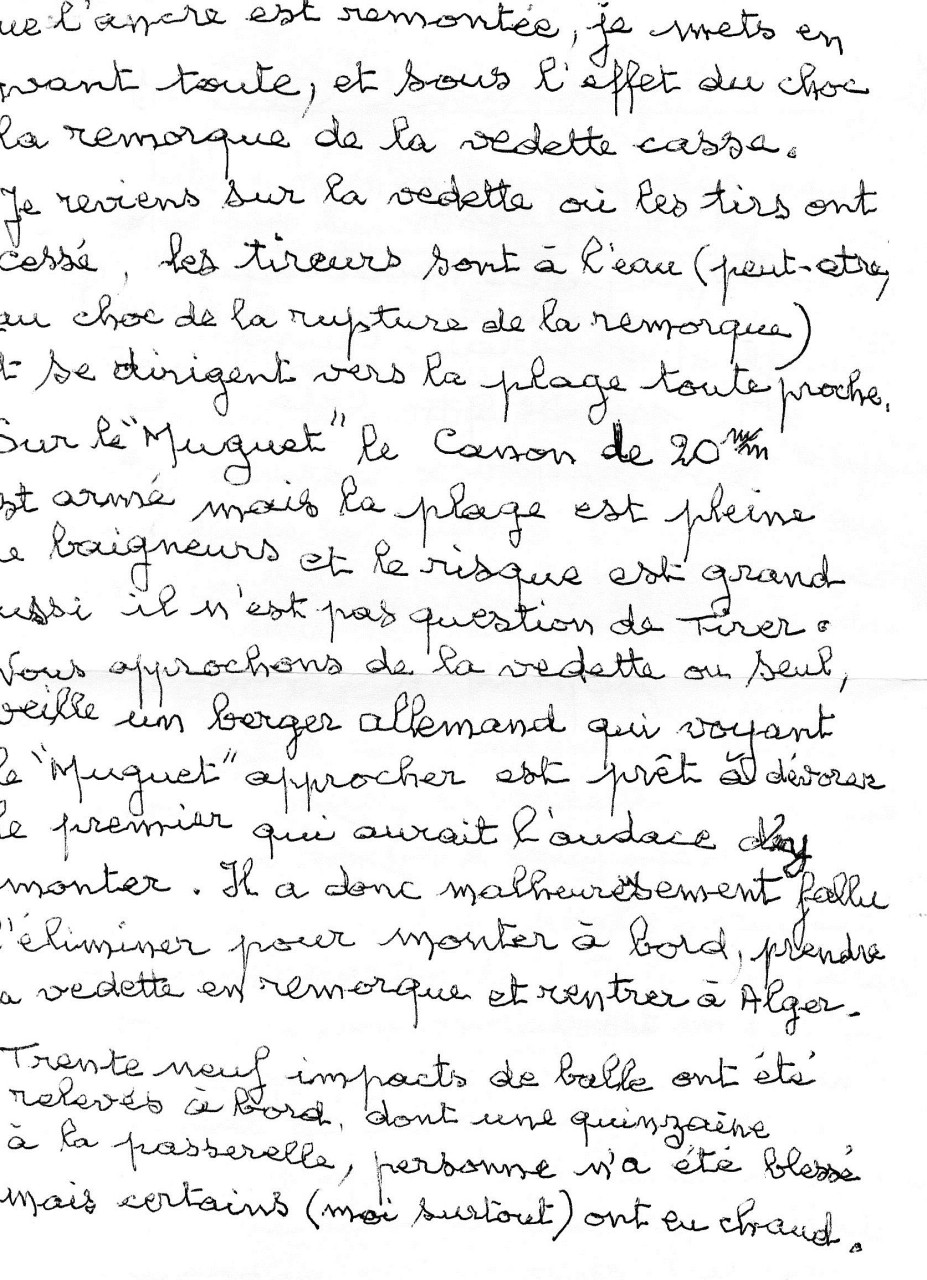 ue l'ancre est remontée, je mets en
avant toute, et sous l'effet du choc
la remorque de la vedette casse.
Je reviens sur la vedette où les tirs ont
cessé, les tireurs sont à l'eau (peut-être,
au choc de la rupture de la remorque)
t se dirigent vers la plage toute proche.
Sur le "Muguet" le canon de 20 mm
st armé mais la plage est pleine
e baigneurs et le risque est grand
ussi il n'est pas question de tirer.
Nous approchons de la vedette ou seul,
veille un berger allemand qui voyant
le "Muguet" approcher est prêt à dévorer
le premier qui aurait l'audace d'y
monter. Il a donc malheureusement fallu
l'éliminer pour monter à bord, prendre
a vedette en remorque et rentrer à Alger.
Trente neuf impacts de balle ont été
relevés à bord, dont une quinzaine
à la passerelle, personne n'a été blessé
mais certains (moi surtout) ont eu chaud.